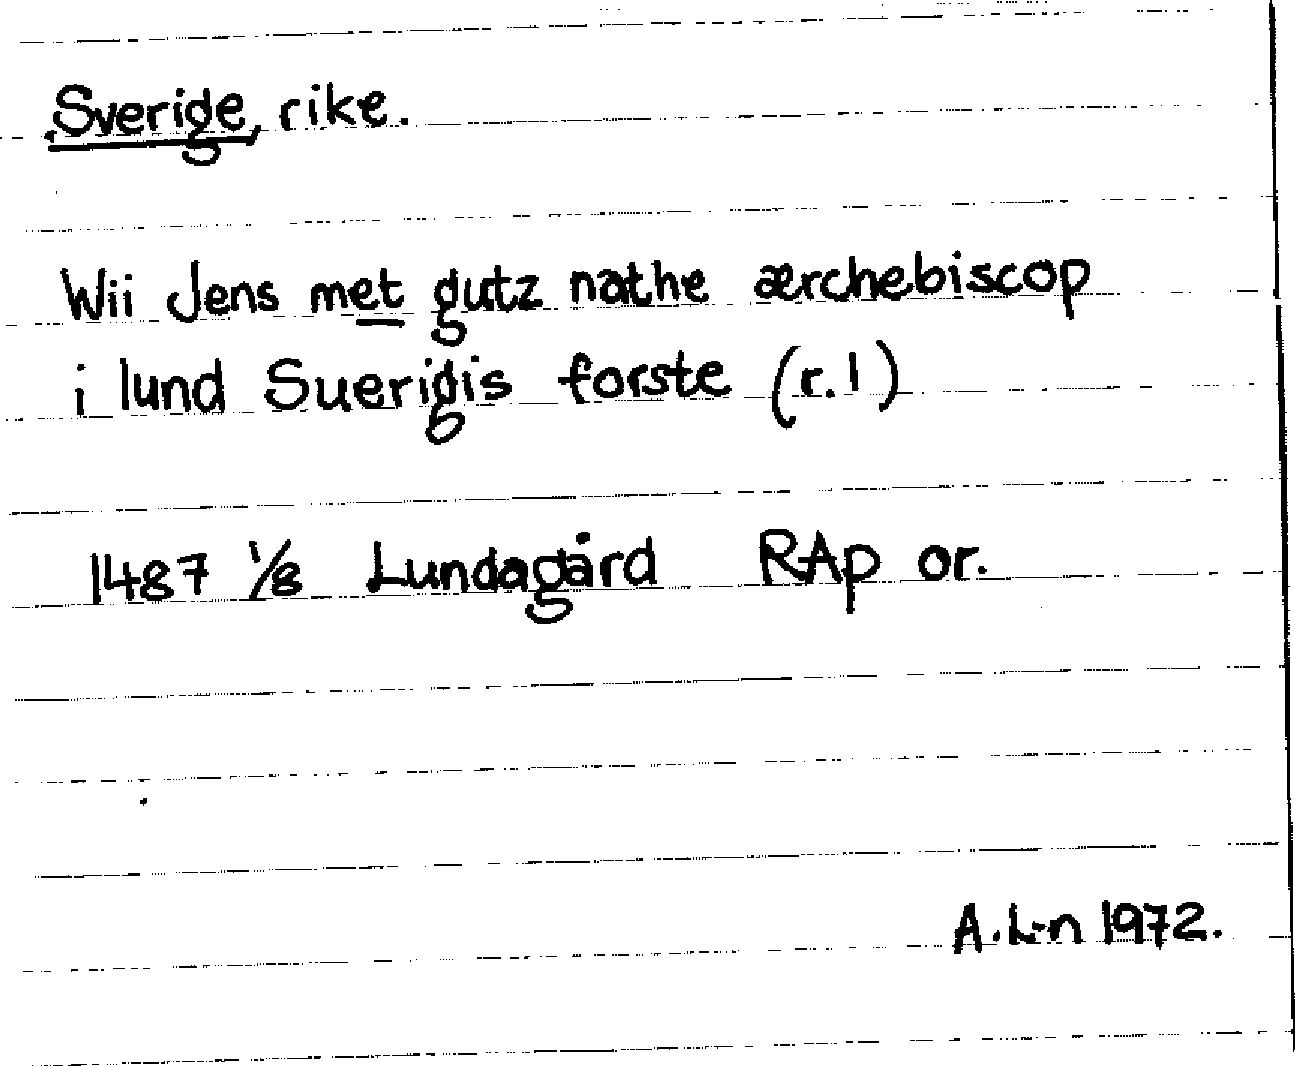 Sverige, rike.
Wii Jens met gutz nathe ærchebiscop
i lund Suerigis forste (r. 1)
1487 1/8 Lundagård RAp or.
A. L-n 1972.